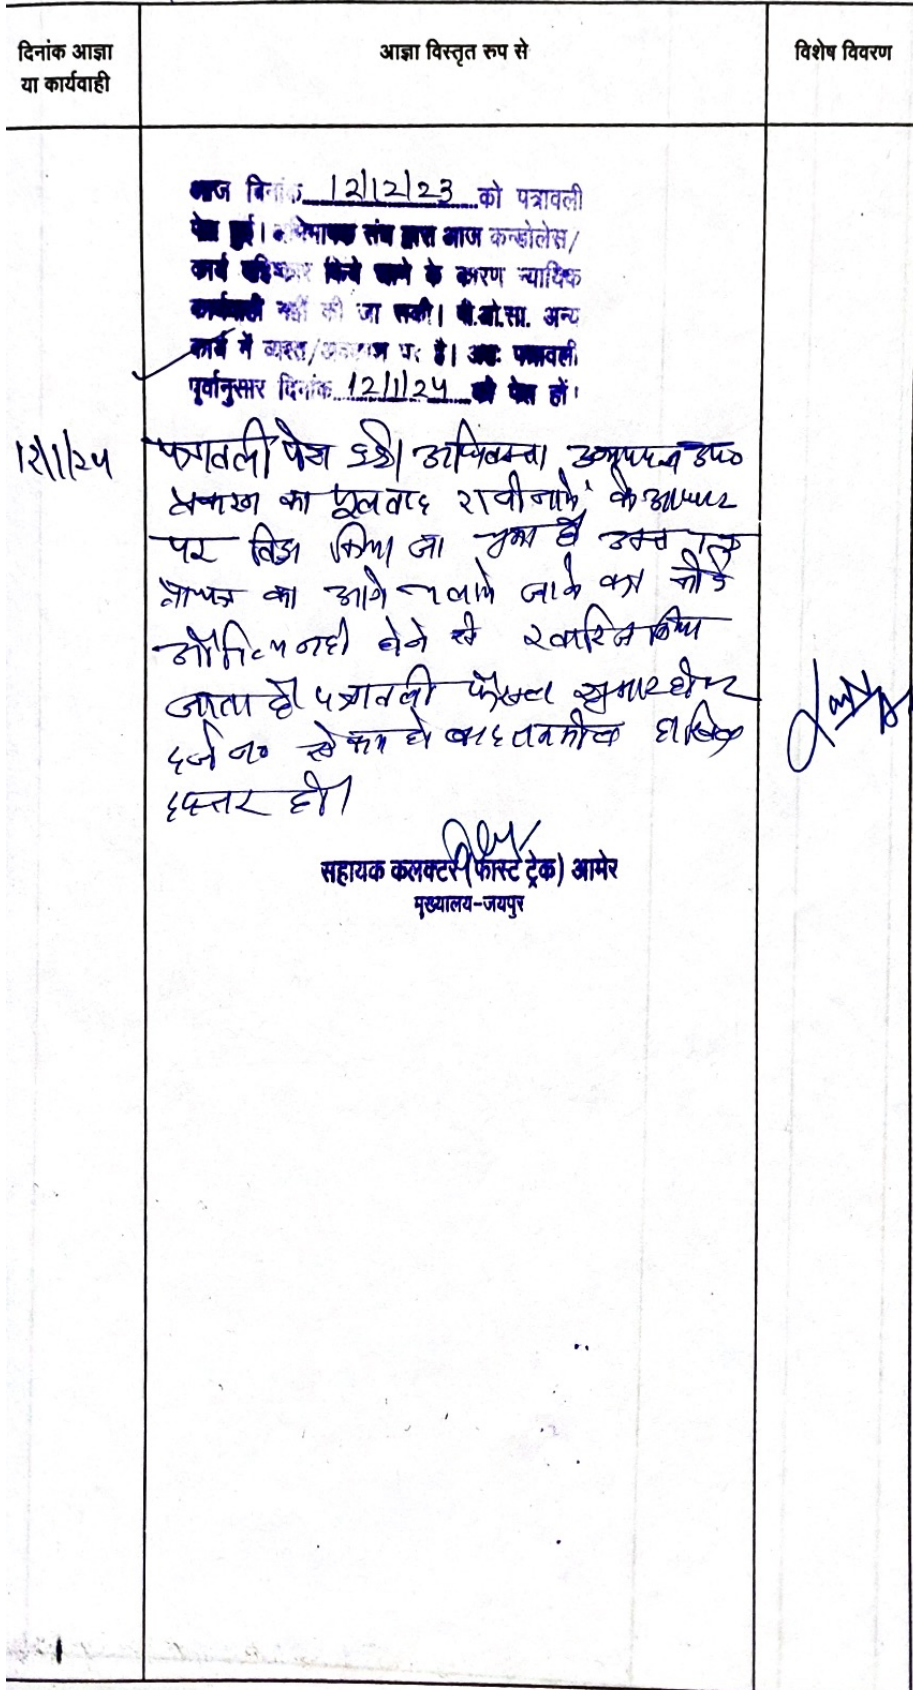 दिनांक आज्ञा
या कार्यवाही
आज्ञा विस्तृत रुप से
विशेष विवरण
आज दिनांक 12/12/23 को पत्रावली
पेश हुई। अभिभाषक संघ द्वारा आज कन्डोलेस/
कार्य बहिष्कार किये जाने के कारण न्यायिक
कार्यवाही नहीं की जा सकी। पी.ओ.सा. अन्य
कार्य में व्यस्त/अवकाश पर है। अतः पत्रावली
पूर्वानुसार दिनांक 12/1/24 को पेश हों।
12/1/24
पत्रावली पेश हुई। अधिवक्ता उभयपक्ष उप०
प्रकरण का मूलवाद राजीनामें के आधार
पर विड्रा किया जा चुका है उक्त
का आगे चलाये जाने का कोई
औचित्य नही होने से खारिज किया
जाता है। पत्रावली फैसल शुमार होकर
दर्ज न० से कम हो बाद तकमील दाखिल
दफ्तर हो।
सहायक कलक्टर (फास्ट ट्रेक) आमेर
मुख्यालय-जयपुर